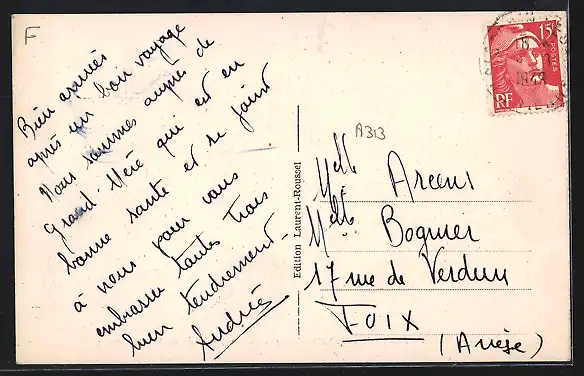 F
Bien arrivées
après un bon voyage
Nous sommes auprès de
Grand-Mère qui est en
bonne santé et se joint
à nous pour vous
embrasser toutes trois
bien tendrement-
Andrée
Edition Laurent-Roussel
A313
15F
POSTES
RF
18
1949
Melle Arcens
Melle Bognier
17 rue de Verdun
FOIX
(Ariège)